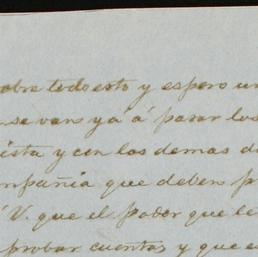 sobre todo esto y espero un
se van ya á pasar los
ista y con los demas d
mpañia que deben p
á V. que el poder que le
probar cuentas y que e